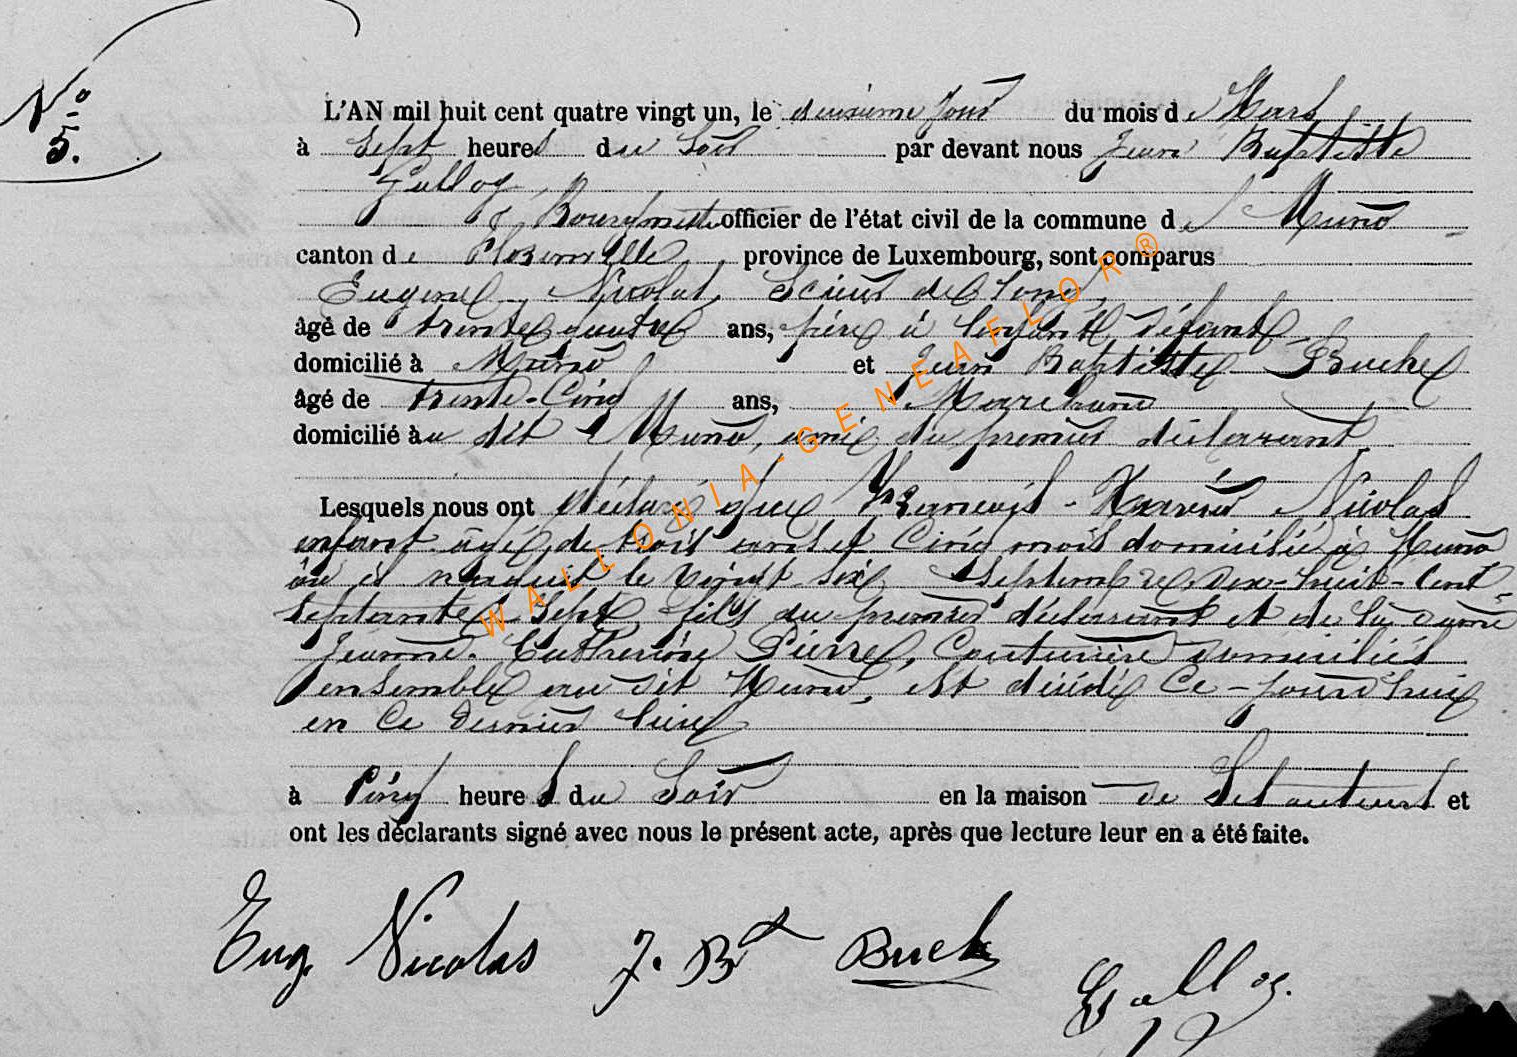 N° 5.
L'AN mil huit cent quatre vingt un, le deuxième jour du mois de Mars
à Sept heures du Soir par devant nous Jean Baptiste
Galloy
Bourgmestre officier de l'état civil de la commune de Muno
canton de Florenville province de Luxembourg, sont comparus
Eugène Nicolas, Scieur de long
âgé de trente quatre ans, père à l'enfant défunt
domicilié à Muno et Jean Baptiste Buche
âgé de trente-Cinq ans, Marchand
domicilié au dit Muno, ami du premier déclarant
Lesquels nous ont déclaré que François-Xavier Nicolas
enfant âgé de trois ans et Cinq mois domicilié à Muno
où il naquit le vingt six Septembre dix-huit-cent-
septante Sept fils du premier déclarant et de la dame
Jeanne Catherine Pierre, Couturière domiciliés
ensemble au dit Muno, est décédé Ce-jourd'hui
en Ce dernier lieu
à Cinq heures du Soir en la maison de et
ont les déclarants signé avec nous le présent acte, après que lecture leur en a été faite.
Eug. Nicolas J. Bte Buche
Galloy.
WALLONIA-GENEAFLOR®